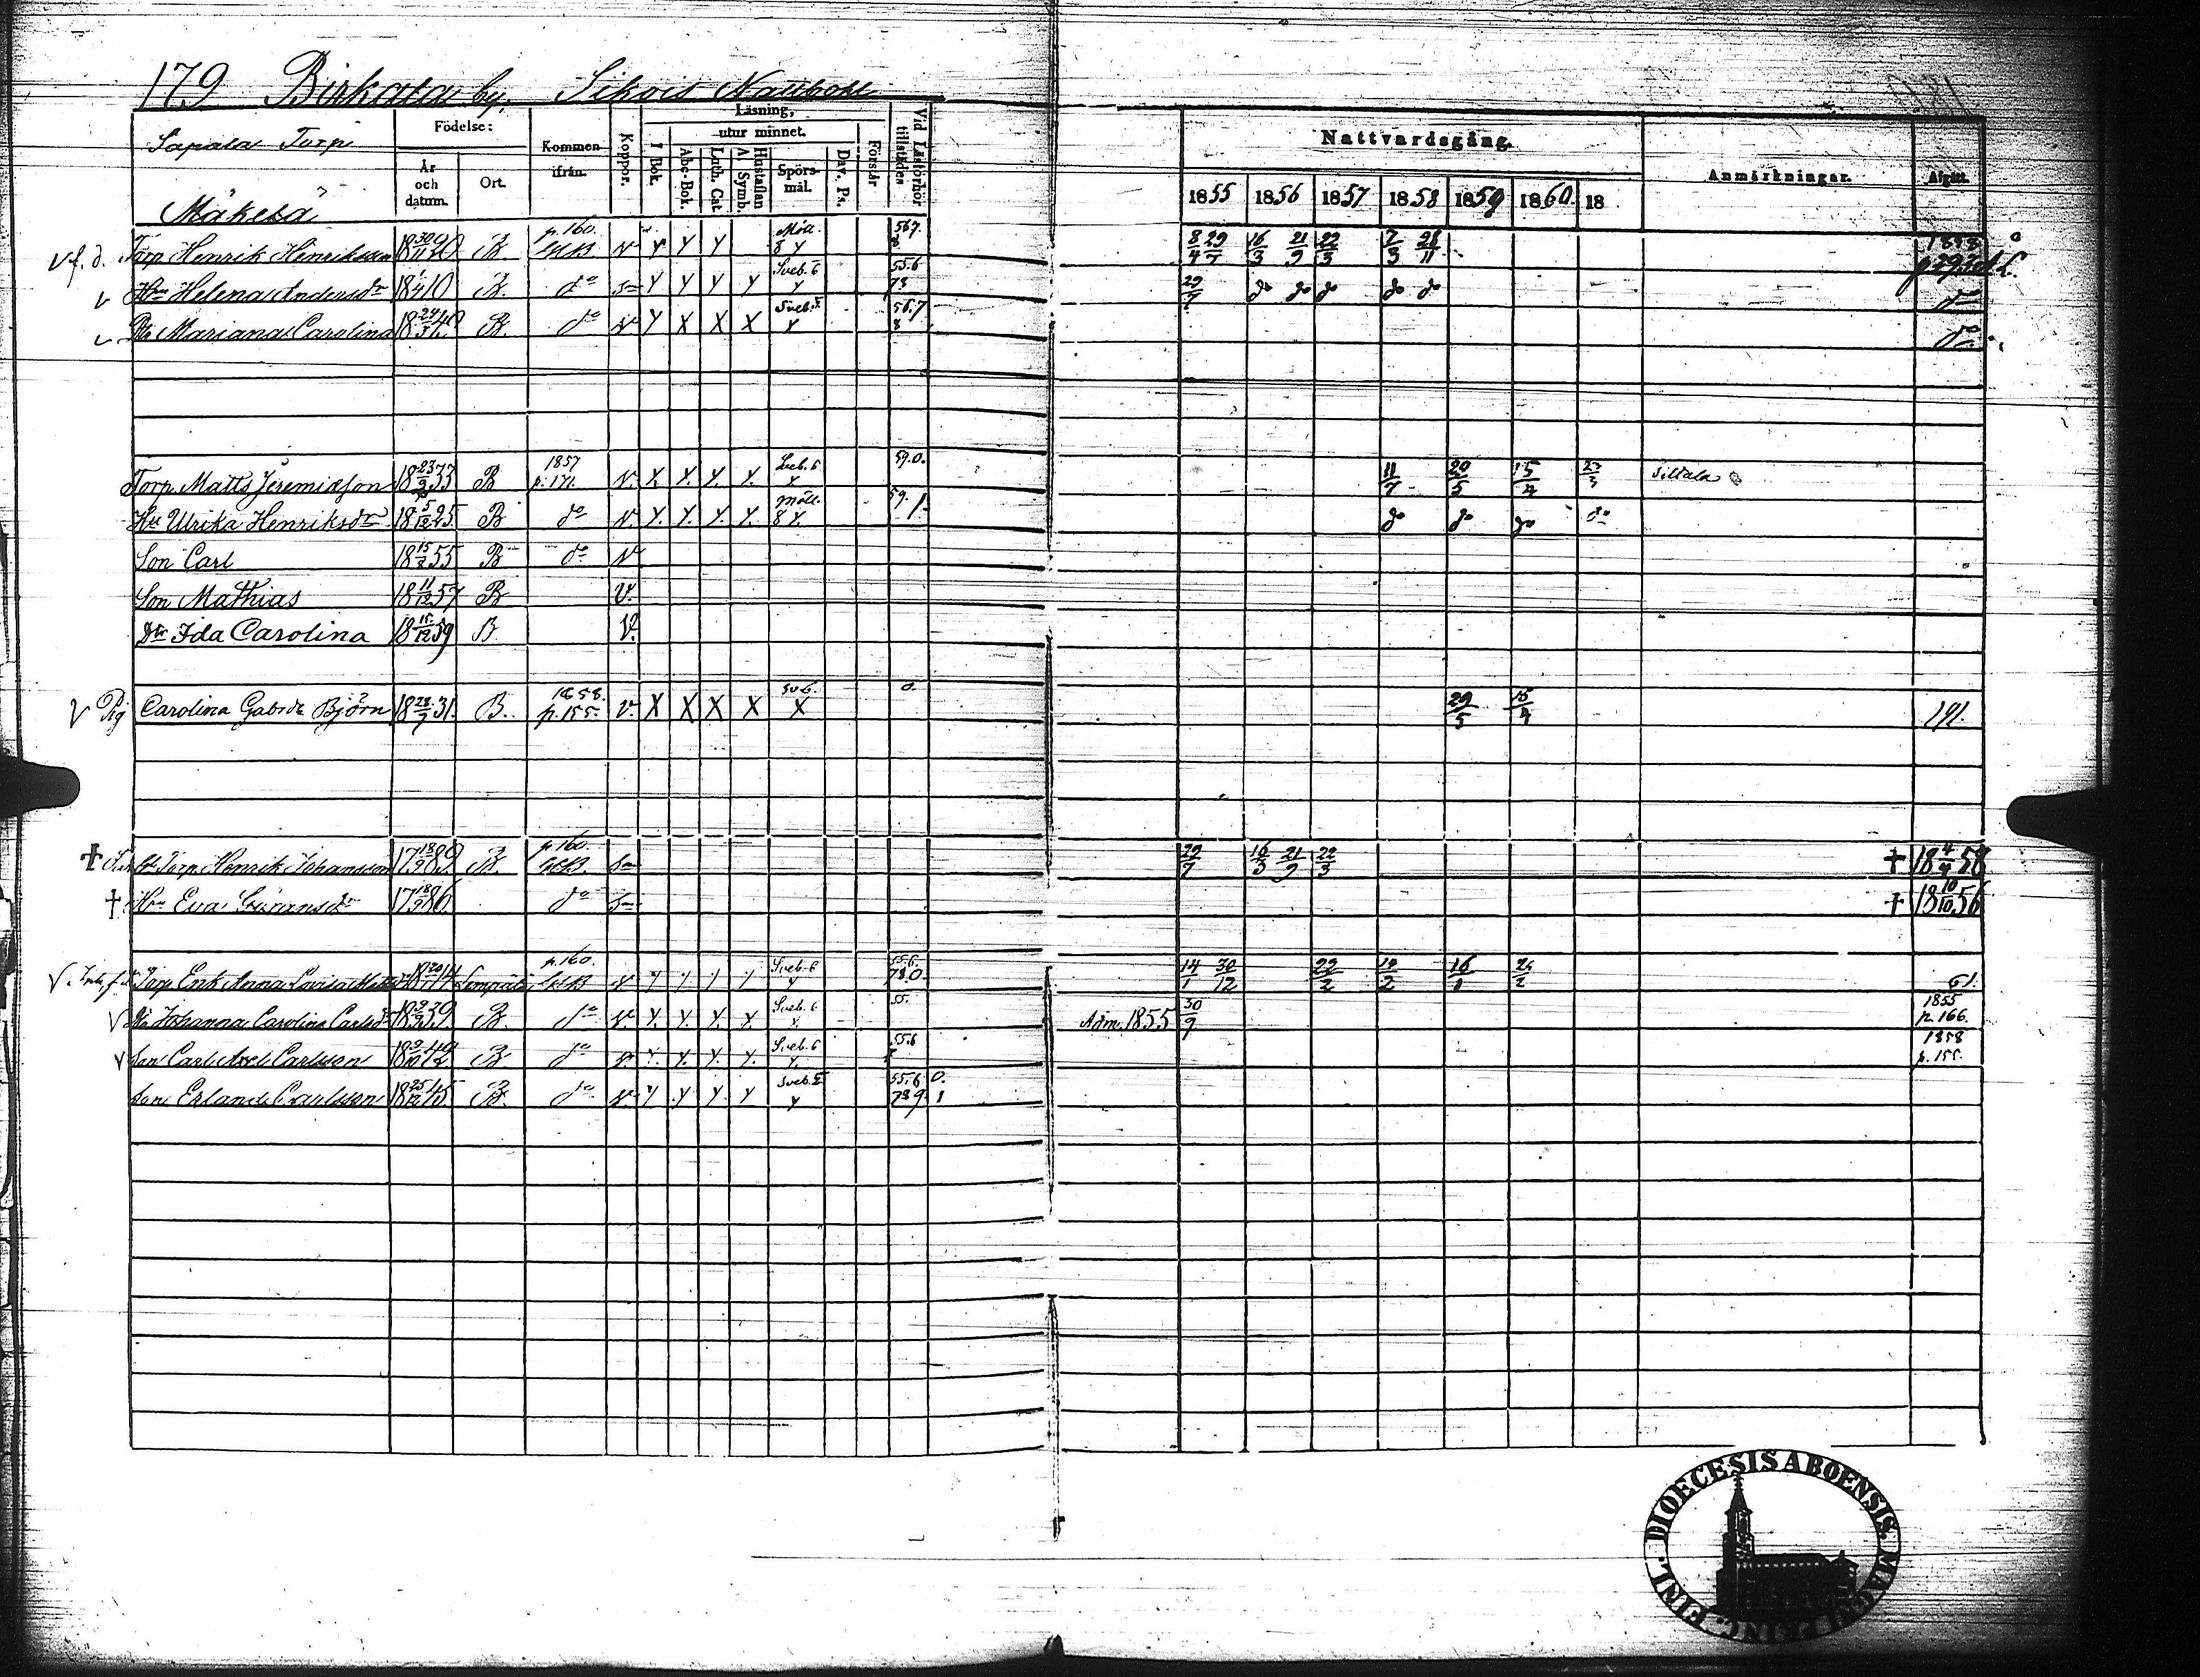 179 Birkala by. Sihvis Nattboht
Sapala Torp
Mäkelä
Födelse:
År och datum.
Ort.
Kommen ifrån.
Koppor.
Läsning,
utur minnet.
I Bok.
Abc-Bok.
Luth. Cat.
Hustaflan A. Symb.
Spörsmål.
Dav. Ps.
Förstår
Vid Läsförhör tillstädes
Nattvardsgång.
1855 1856 1857 1858 1859 1860 18
Anmärkningar.
Afgått.
v f. d. Torp Henrik Henriksson 18 30/11 20 B. p. 160. V Y Y Y Möll. 8 Y 567 8/4 29/7 16/3 21/9 22/3 7/3 28/11 1858
v Hu Helena Andersdr 18 1/4 10 B. do Y Y Y Y Sveb. 6 Y 55.6 78 29/7 do do do do do do
v Dr Mariana Carolina 18 24/3 40 B. do V Y X X X Sveb. Y 56.7 8 do
Torp Matts Jeremiasson 18 23/9 33 B 1857 p. 171. V. Y. Y. Y. Y. Sveb. 6 Y 59.0. 11/7 20/5 15/4 23/3 Sillala
Hu Ulrika Henriksdr 18 5/12 25. B do V. Y. Y. Y. Y. Möll. 8 Y. 59. 1. do do do do
Son Carl 18 15/2 55 B do V
Son Mathias 18 11/12 57 B V.
Dtr Ida Carolina 18 15/12 59 B. V.
V Pig Carolina Gabrdr Björn 18 28/7 31. B. 1858. p. 155. V. X X X X Sv 6. X 0. 29/5 15/4 191.
† Torp Henrik Johansson 17 18/9 89 B. p. 160. 29/7 16/3 21/9 22/3 † 18 4/4 58
† Hu Eva Göransdr 17 18/9 86 do † 18 10/10 56
V. Torp Enk Anna Lovisa 18 20/1 14 Lempäälä p. 160. Sveb. 6 Y 55.6. 78.0. 14/1 30/12 22/2 12/2 16/1 61.
V Dr Johanna Carolina Carlsdr 18 39 B. do V. Y. Y. Y. Y. Sveb. 6 Y. 55. Adm. 1855 30/9 1855 p. 166.
v Son Carl Axel Carlsson 18 42 B. do Y. Y. Y. Y. Sveb. 6 Y. 55.6 1858 p. 155.
Son Erland Carlsson 18 25/12 45 B. do V. Y Y Y Y Sveb. Y 55.6 0. 789. 1
DIOECESIS ABOENSIS. MAGNI PRINC. FINL.